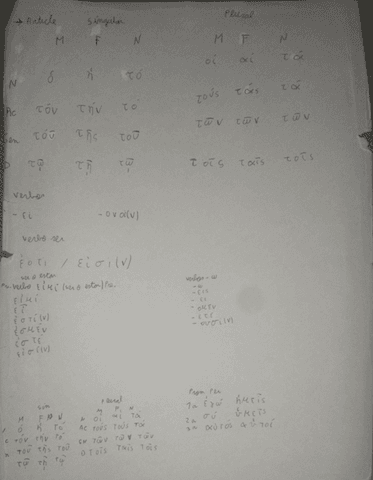 → Article singular Plural
M F N M F N
N ὁ ἡ τό οἱ αἱ τά
Ac τόν τήν τό τούς τάς τά
τοῦ τῆς τοῦ τῶν τῶν τῶν
D τῷ τῇ τῷ τοῖς ταῖς τοῖς
verbos
-ει -ουσι(ν)
verbo ser
ἐστι / εἰσι(ν)
εἰμί
εἶ
ἐστί(ν)
ἐσμέν
ἐστέ
εἰσί(ν)
-ω
-εις
-ει
-ομεν
-ετε
-ουσι(ν)
Plural
M F N M F N
ὁ ἡ τό οἱ αἱ τά
τόν τήν τό Ac τούς τάς τά
τοῦ τῆς τοῦ τῶν τῶν τῶν
τῷ τῇ τῷ τοῖς ταῖς τοῖς
1a ἐγώ ἡμεῖς
2a σύ ὑμεῖς
3a αὐτός αὐτοί